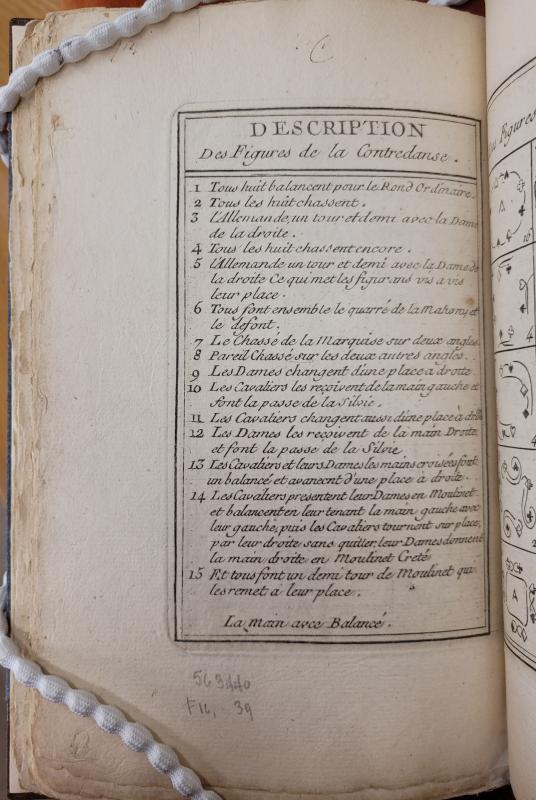 C
DESCRIPTION
Des Figures de la Contredanse.
1 Tous huit balancent pour le Rond Ordinaire.
2 Tous les huit chassent.
3 l'Allemande, un tour et demi avec la Dame
de la droite.
4 Tous les huit chassent encore.
5 l'Allemande un tour et demi avec la Dame de
la droite Ce qui met les figurans vis a vis
leur place.
6 Tous font ensemble le quarré de la Mahony et
le défont.
7 Le Chassé de la Marquise sur deux angles.
8 Pareil Chassé sur les deux autres angles.
9 Les Dames changent d'une place a droite
10 Les Cavaliers les reçoivent de la main gauche et
font la passe de la Silvie.
11 Les Cavaliers changent aussi d'une place à droite
12 Les Dames les reçoivent de la main Droite
et font la passe de la Silvie
13 Les Cavaliers et leurs Dames les mains croisées font
un balancé et avancent d'une place à droite.
14 Les Cavaliers presentent leur Dames en Moulinet
et balancent en leur tenant la main gauche avec
leur gauche, puis les Cavaliers tournent sur place,
par leur droite sans quitter, leur Dames donnent
la main droite en Moulinet Creté
15 Et tous font un demi tour de Moulinet qui
les remet a leur place.
La main avec Balancé.
563440
F16, 39
Figures
A
4
2
A